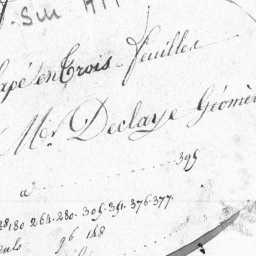 Sur
en Trois feuilles
Mr Declaye Géomè
a 395
180 264.280. 305.351.376.377.
96 148